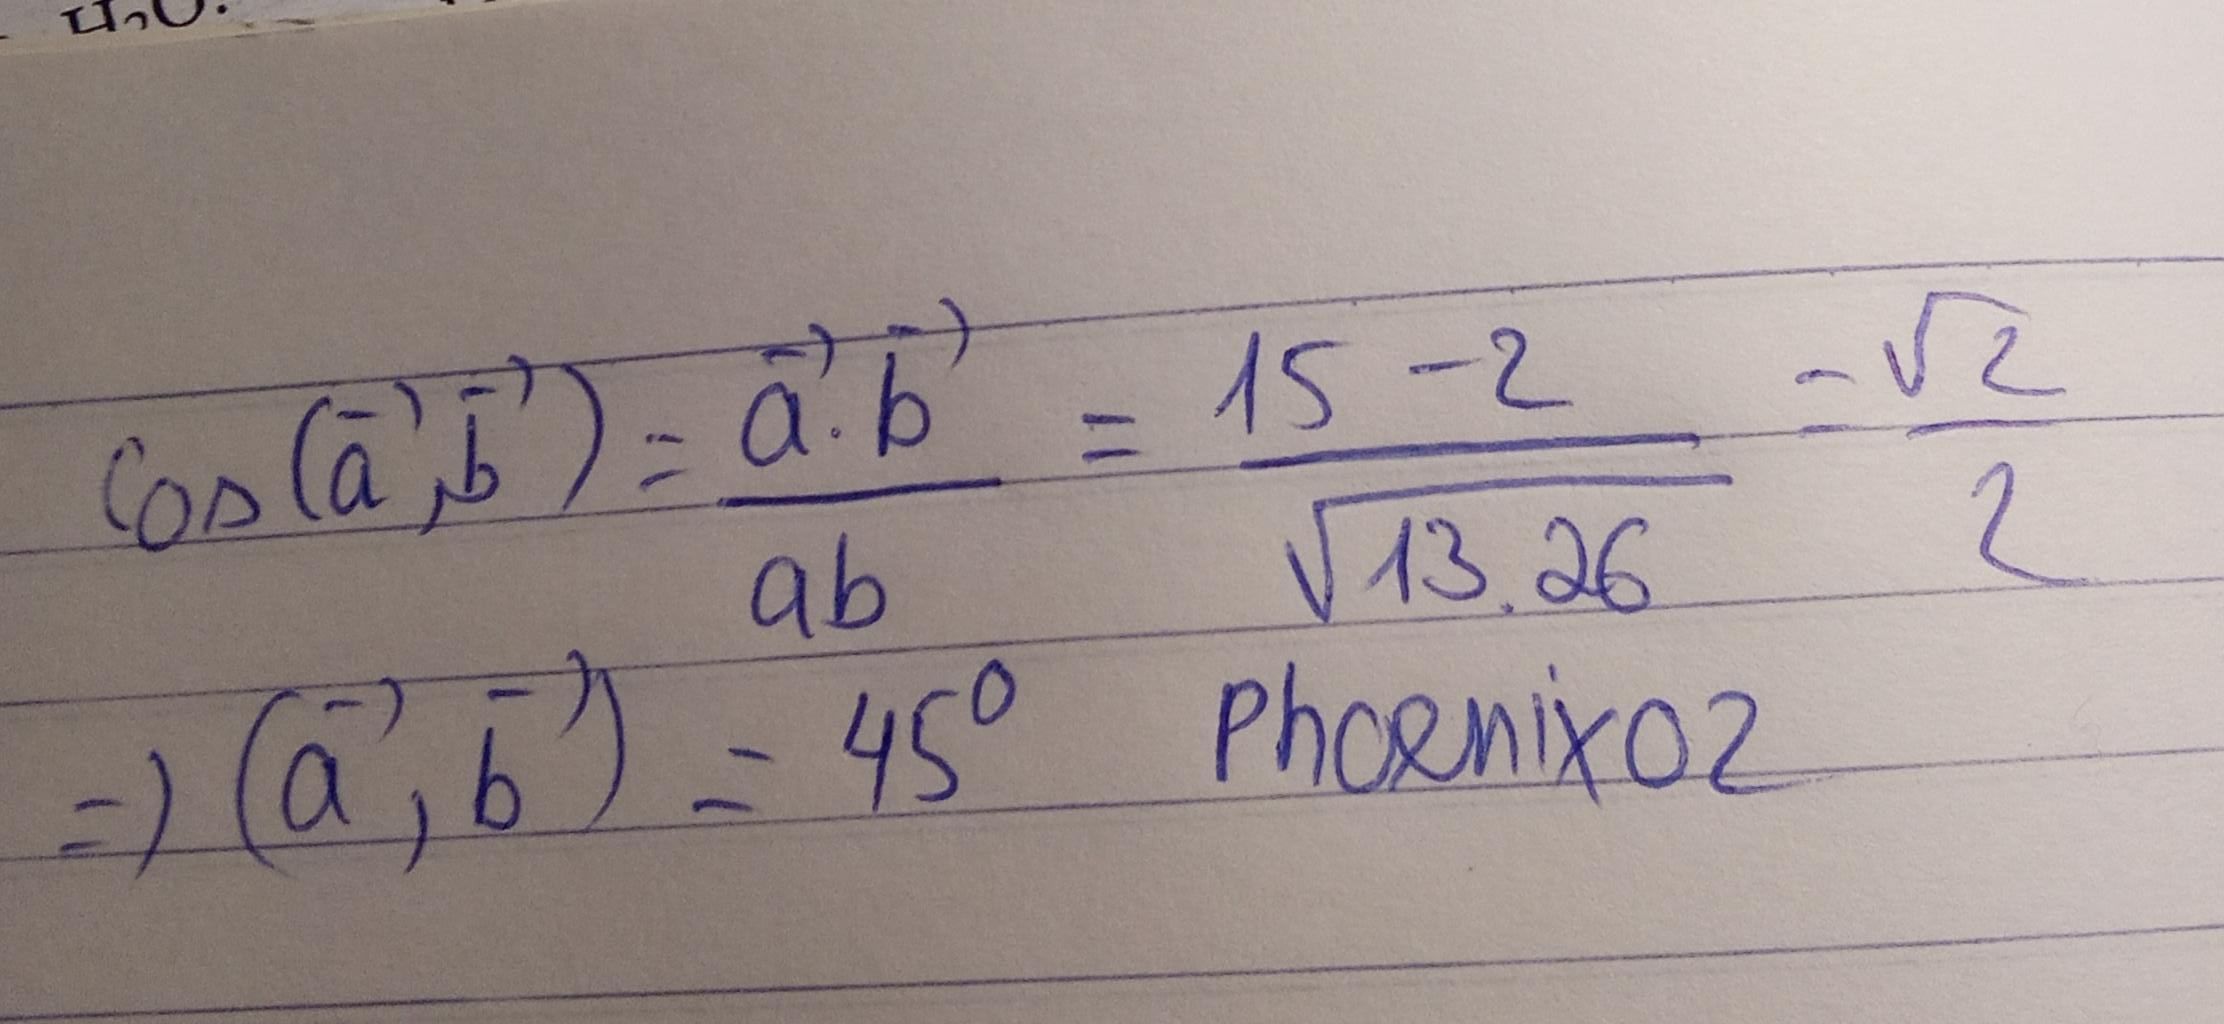 H₂O.
cos(a⃗, b⃗) = a⃗.b⃗ / ab = 15 - 2 / √13.26 = √2 / 2
=> (a⃗, b⃗) = 45⁰ Phoenix02